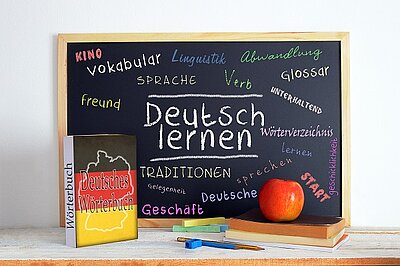 KINO
vokabular
Linguistik
Abwandlung
SPRACHE
Verb
Glossar
UNTERHALTEND
freund
Deutsch
lernen
Wörterverzeichnis
lernen
geschicklichkeit
TRADITIONEN
sprechen
START
Gelegenheit
Deutsche
Geschäft
Wörterbuch
Deutsches
Wörterbuch